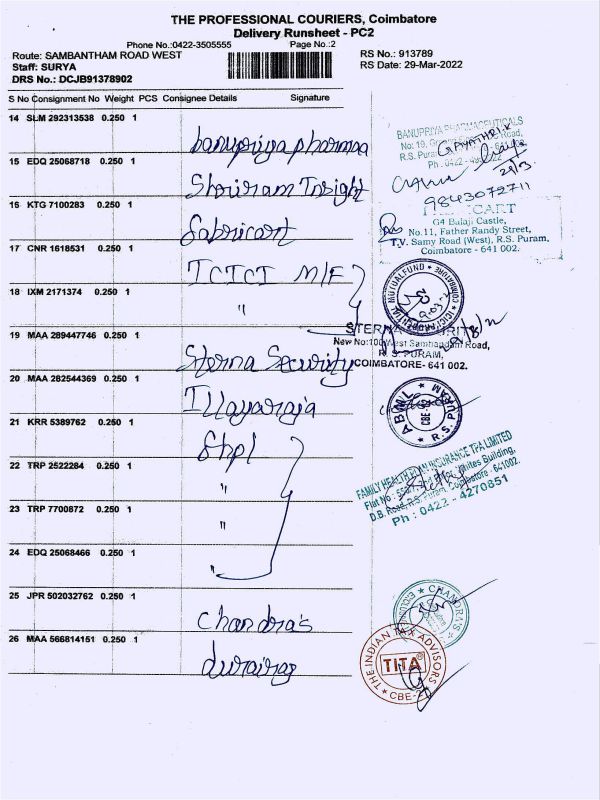 THE PROFESSIONAL COURIERS, Coimbatore
Delivery Runsheet - PC2
Phone No.:0422-3505555 Page No.:2
Route: SAMBANTHAM ROAD WEST RS No.: 913789
Staff: SURYA RS Date: 29-Mar-2022
DRS No.: DCJB91378902
S No Consignment No Weight PCS Consignee Details Signature
14 SLM 292313538 0.250 1
banupriya pharmaa
15 EDQ 25068718 0.250 1
Shriram Insight
16 KTG 7100283 0.250 1
Fabricart
17 CNR 1618531 0.250 1
ICICI M/F
18 IXM 2171374 0.250 1
"
19 MAA 289447746 0.250 1
Sterna Security
20 MAA 282544369 0.250 1
Illayaraja
21 KRR 5389762 0.250 1
fhpl
22 TRP 2522284 0.250 1
"
23 TRP 7700872 0.250 1
"
24 EDQ 25068466 0.250 1
"
25 JPR 502032762 0.250 1
Chandra's
26 MAA 566814151 0.250 1
durairaj
BANUPRIYA PHARMACEUTICALS
No: 19, Road,
R.S. Puram
Ph : 0422 -
GAYATHRI.K
29/3
9843072711
G4 Balaji Castle,
No.11, Father Randy Street,
T.V. Samy Road (West), R.S. Puram,
Coimbatore - 641 002.
MUTUAL FUND ★ COIMBATORE ★
STERNA SECURITY
New No:100 West Sambandam Road,
R.S. PURAM,
COIMBATORE- 641 002.
ABML ★ R.S. PURAM ★
CBE-
FAMILY HEALTH PLAN INSURANCE TPA LIMITED
Flat No: Building,
D.B. Road, R.S. Puram, Coimbatore - 641002.
Ph : 0422 - 4270851
★ CHANDRA'S ★
THE INDIAN TAX ADVISORS
TITA
★ CBE-